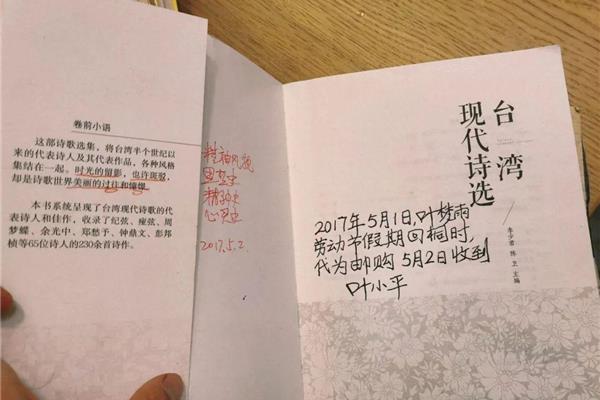 卷前小语
这部诗歌选集，将台湾半个世纪以
来的代表诗人及其代表作品，各种风格
集结在一起。时光的留影，也许斑驳，
却是诗歌世界美丽的过往和憧憬。
本书系统呈现了台湾现代诗歌的代
表诗人和佳作，收录了纪弦、痖弦、周
梦蝶、余光中、郑愁予、钟鼎文、彭邦
桢等65位诗人的230余首诗作。
精神史
心灵史
2017.5.2.
台湾
现代诗选
李少君 陈卫 主编
2017年5月1日,叶梦雨
劳动节假期回桐时,
代为邮购 5月2日收到
叶小平